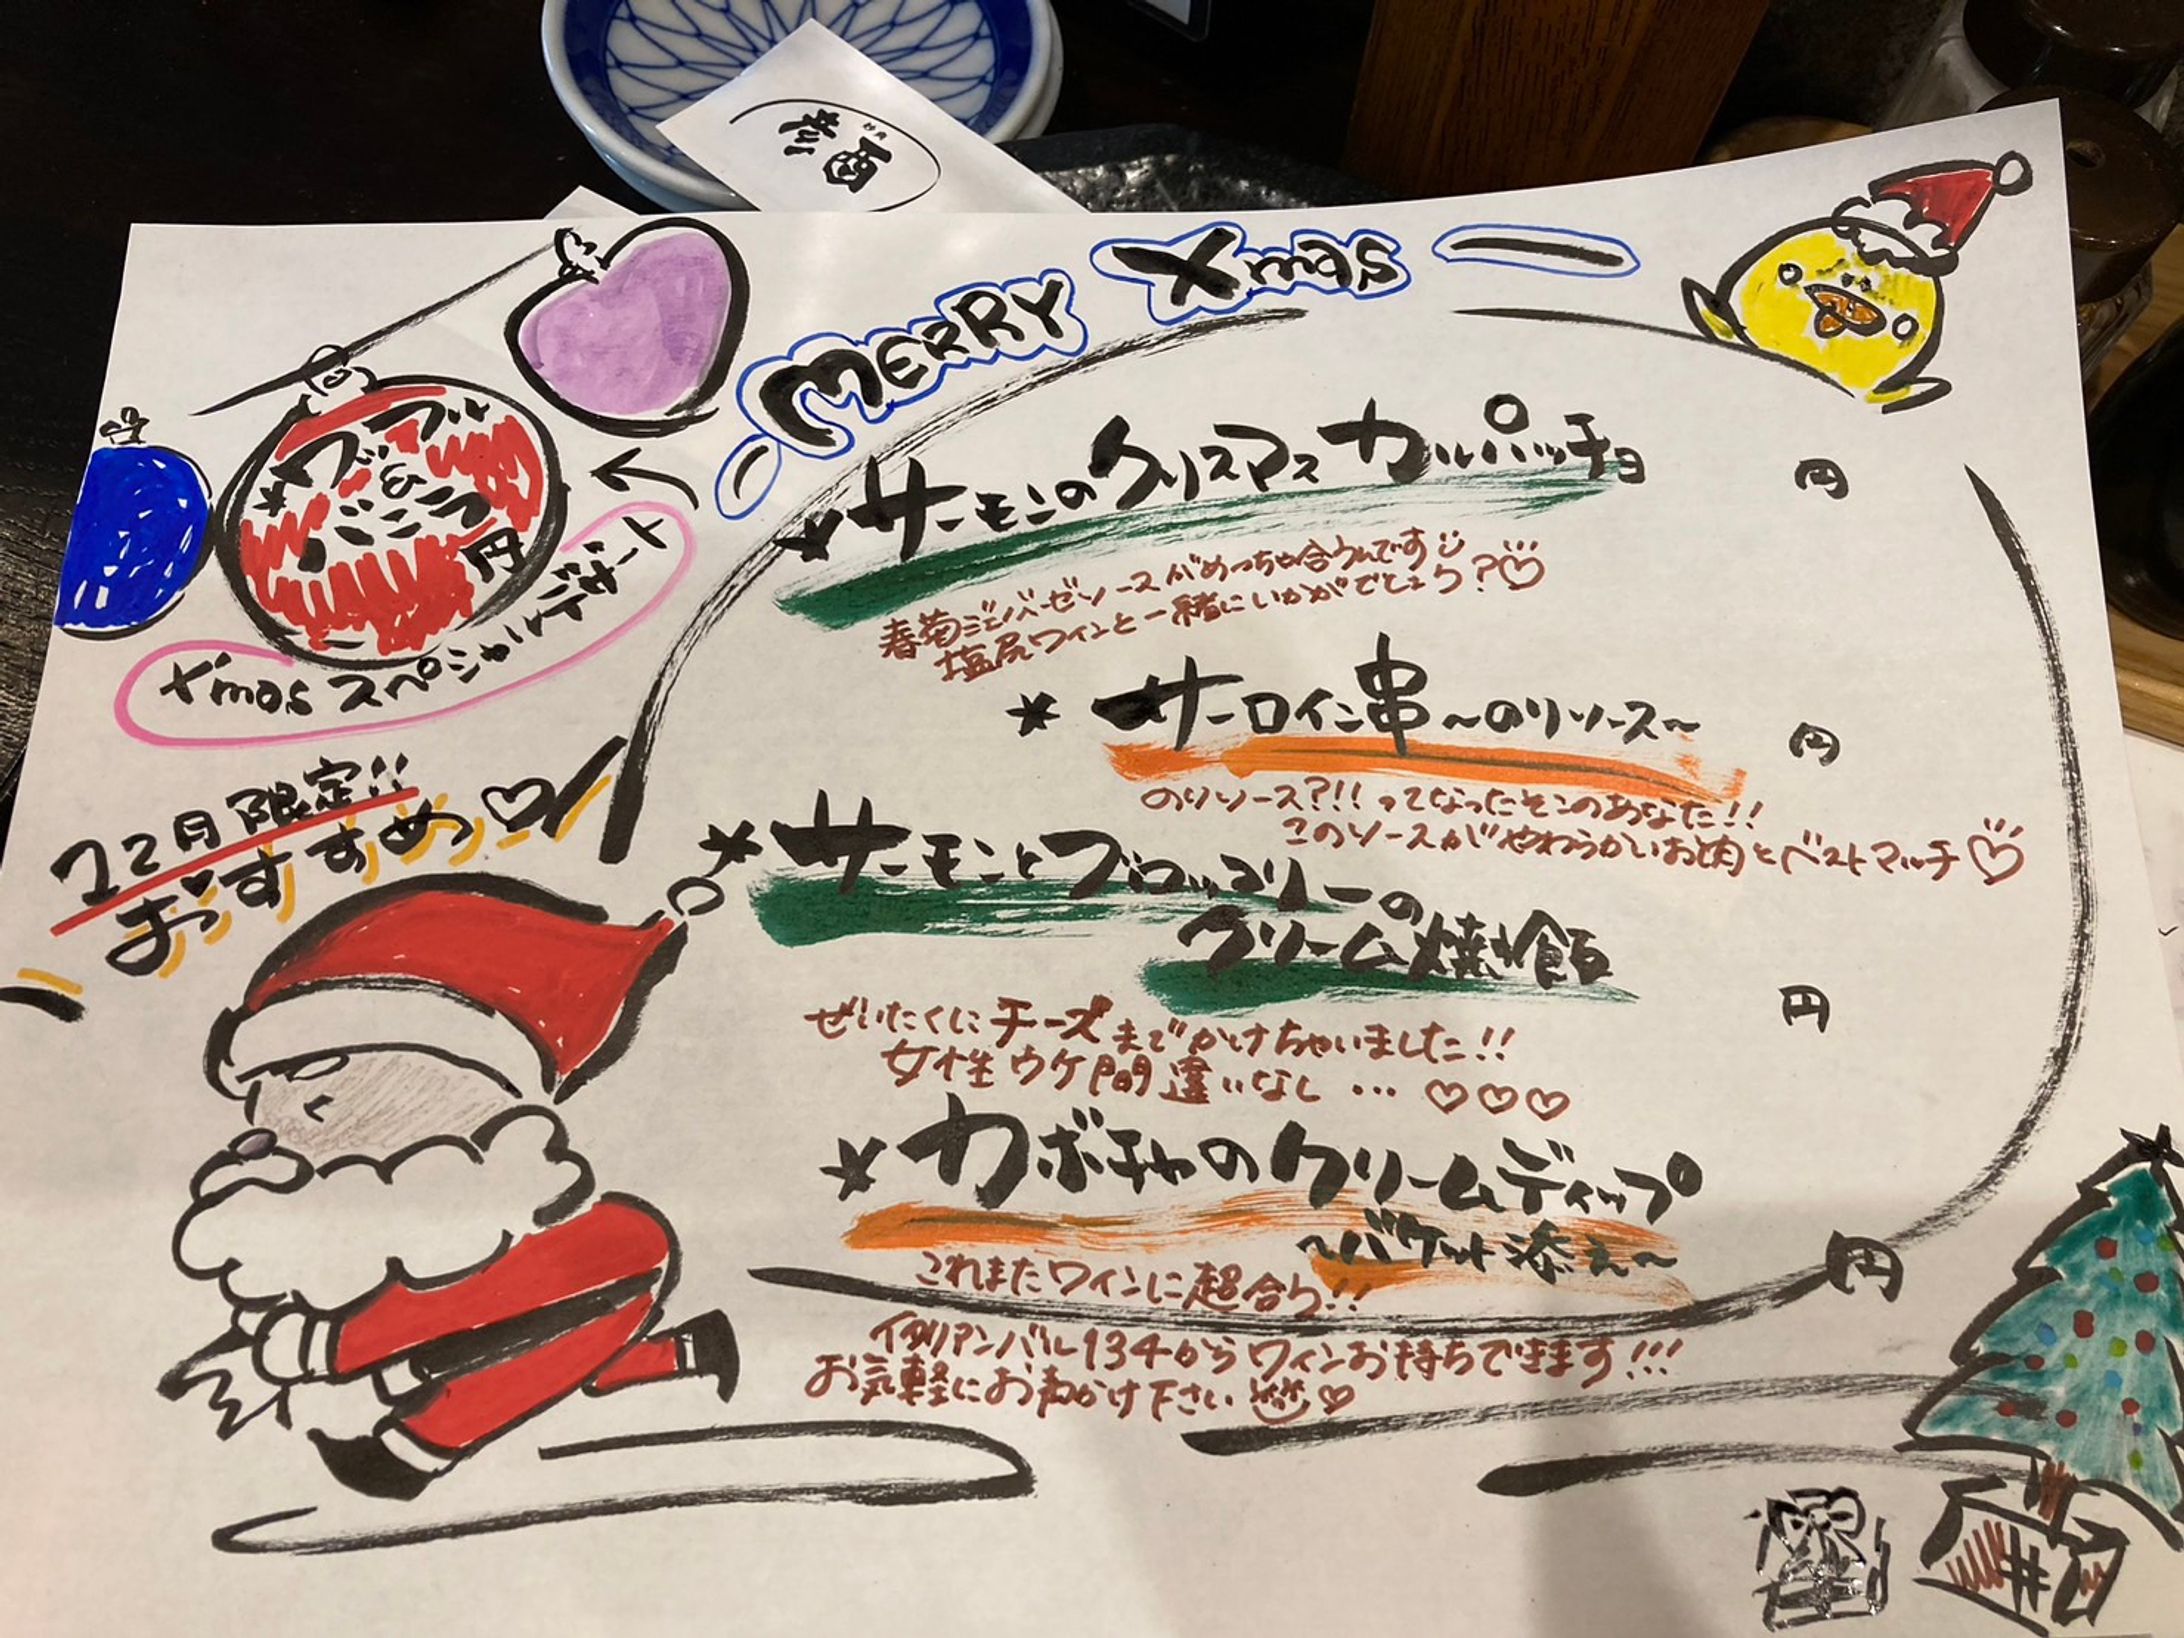 MERRY Xmas
*ブブル
&
バニラ
円
X'mas スペシャルデザート
12月限定!!
おすすめ♡
*サーモンのクリスマスカルパッチョ 円
春菊ジェノバーゼソースがめっちゃ合うんです
塩尻ワインと一緒にいかがでしょう?♡
*サーロイン串~のりソース~ 円
のりソース?!!ってなったそこのあなた!!
このソースがやわらかいお肉とベストマッチ♡
*サーモンとブロッコリーの
クリーム焼飯
円
ぜいたくにチーズまでかけちゃいました!!
女性ウケ間違いなし…♡♡♡
*カボチャのクリームディップ
~バケット添え~
円
これまたワインに超合う!!
イタリアンバル134からワインお持ちできます!!!
お気軽にお声かけ下さい♡